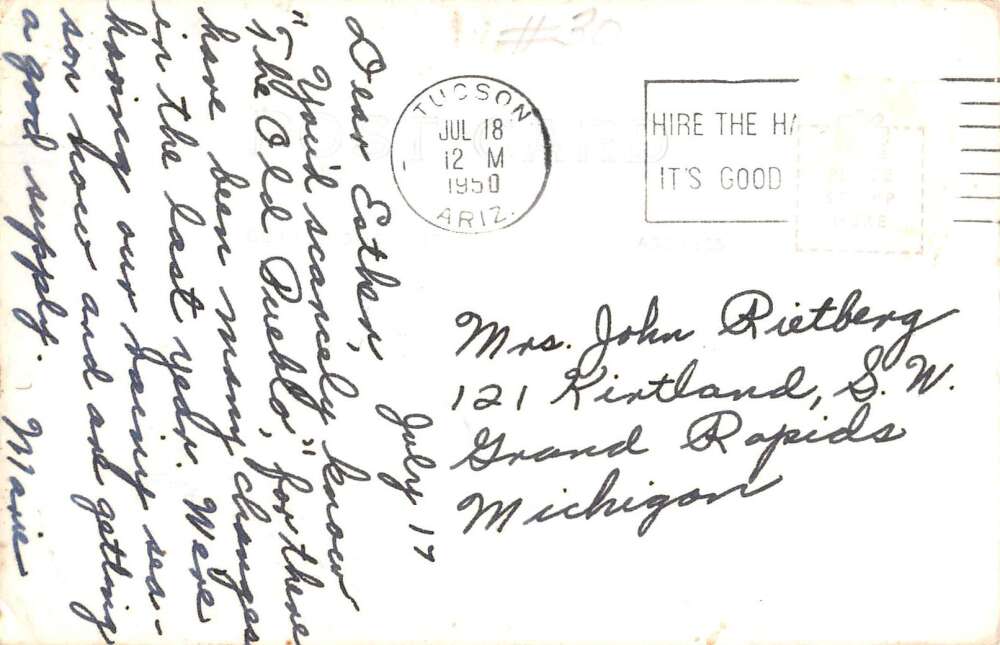 #30
TUCSON
JUL 18
12 M
1950
ARIZ.
HIRE THE HA
IT'S GOOD
POST CARD
July 17
Dear Esther,
You'd scarcely know
"The Old Pueblo," for there
have been many changes
in the last year. Were
having our rainy sea-
son now and are getting
a good supply. Marie
Mrs. John Rietberg
121 Kirtland, S. W.
Grand Rapids
Michigan